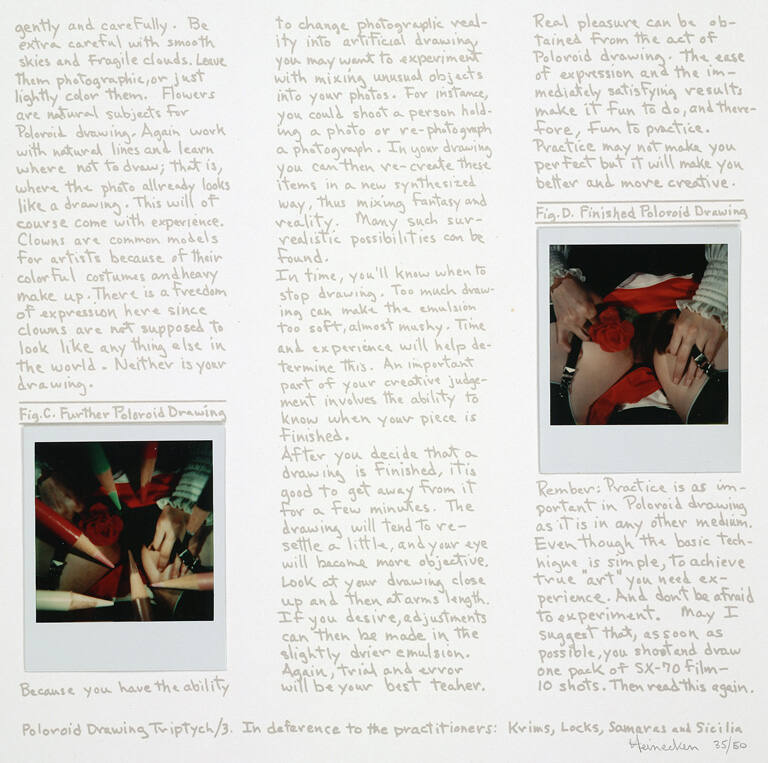 gently and carefully. Be
extra careful with smooth
skies and fragile clouds. Leave
them photographic, or just
lightly color them. Flowers
are natural subjects for
Poloroid drawing. Again work
with natural lines and learn
where not to draw; that is,
where the photo allready looks
like a drawing. This will of
course come with experience.
Clowns are common models
for artists because of their
colorful costumes and heavy
make up. There is a freedom
of expression here since
clowns are not supposed to
look like any thing else in
the world. Neither is your
drawing.
Fig.C. Further Poloroid Drawing
Because you have the ability
to change photographic real-
ity into artificial drawing,
you may want to experiment
with mixing unusual objects
into your photos. For instance,
you could shoot a person hold-
ing a photo or re-photograph
a photograph. In your drawing
you can then re-create these
items in a new synthesized
way, thus mixing fantasy and
reality. Many such sur-
realistic possibilities can be
found.
In time, you'll know when to
stop drawing. Too much draw-
ing can make the emulsion
too soft, almost mushy. Time
and experience will help de-
termine this. An important
part of your creative judge-
ment involves the ability to
know when your piece is
finished.
After you decide that a
drawing is finished, it is
good to get away from it
for a few minutes. The
drawing will tend to re-
settle a little, and your eye
will become more objective.
Look at your drawing close
up and then at arms length.
If you desire, adjustments
can then be made in the
slightly drier emulsion.
Again, trial and error
will be your best teaher.
Real pleasure can be ob-
tained from the act of
Poloroid drawing. The ease
of expression and the im-
mediately satisfying results
make it fun to do, and there-
fore, fun to practice.
Practice may not make you
perfect but it will make you
better and more creative.
Fig.D. Finished Poloroid Drawing
Rember: Practice is as im-
portant in Poloroid drawing
as it is in any other medium.
Even though the basic tech-
nique is simple, to achieve
true "art" you need ex-
perience. And don't be afraid
to experiment. May I
suggest that, as soon as
possible, you shoot and draw
one pack of SX-70 film-
10 shots. Then read this again.
Poloroid Drawing Triptych/3. In deference to the practitioners: Krims, Locks, Samaras and Sicilia
Heinecken 35/50